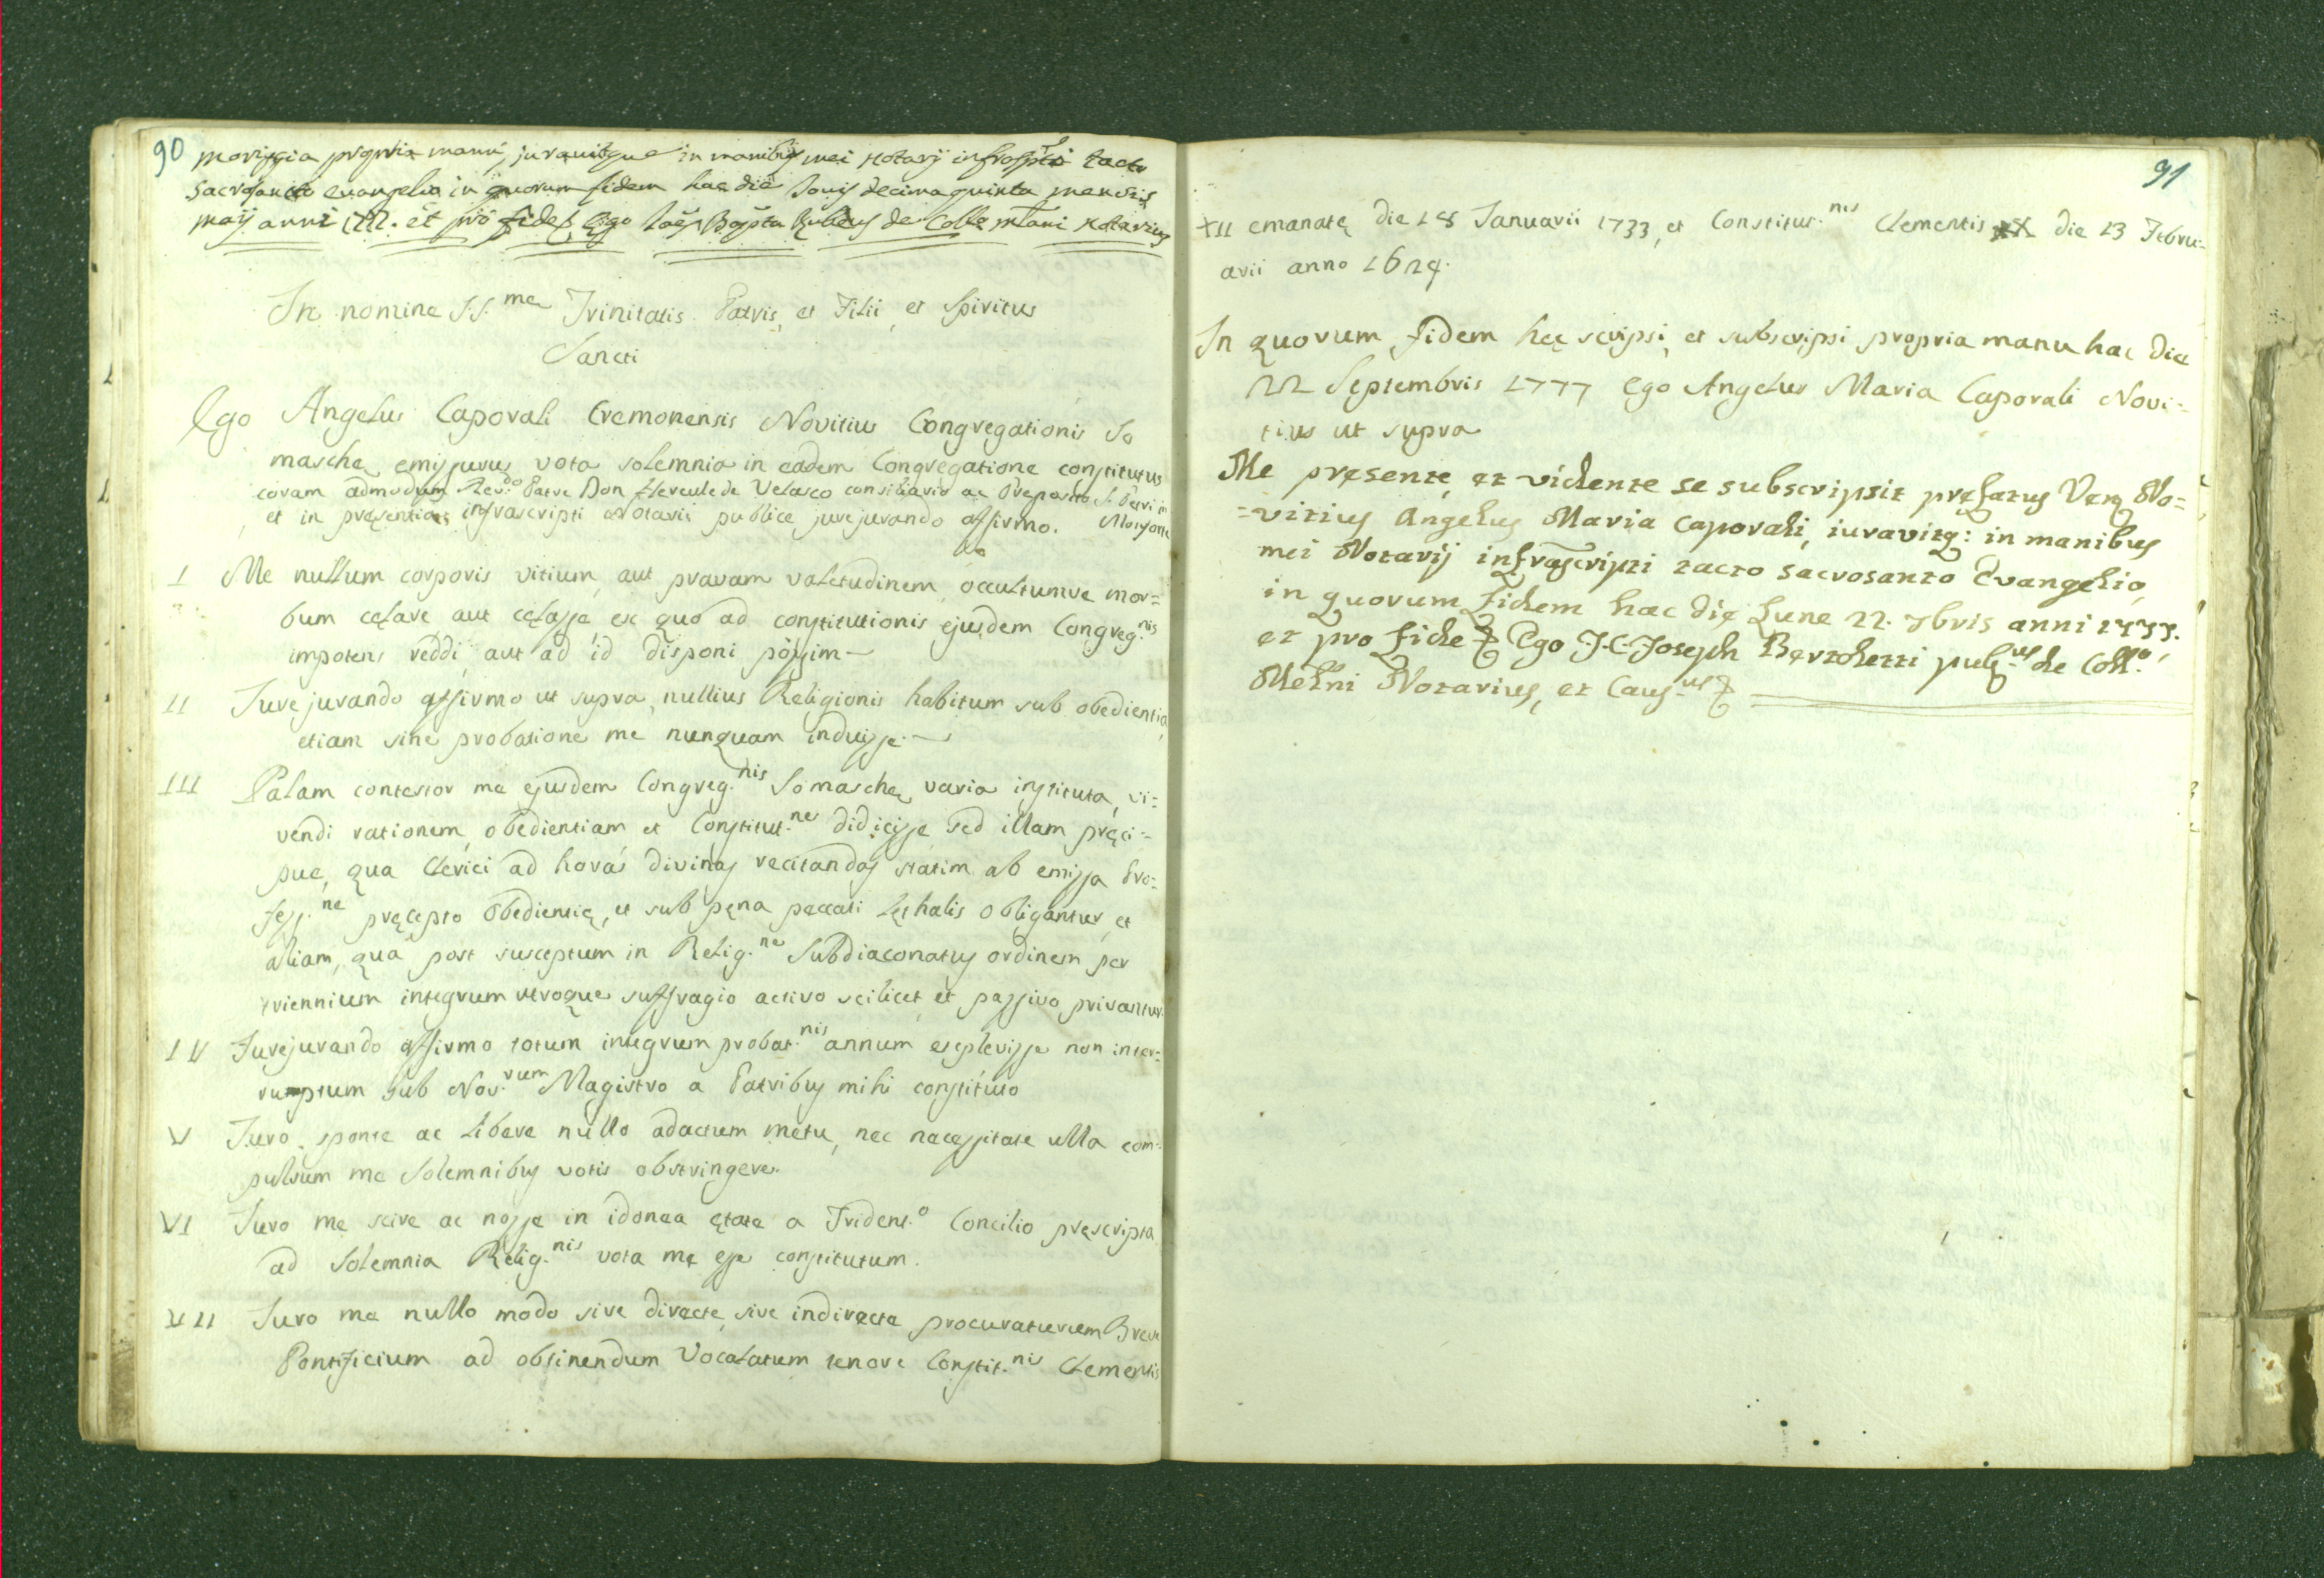 90
moriggia propria manu, juravitque in manibus mei Notarij infrascpti tacto
sacrosancto evangelio in quorum fidem hac die Jovis decimaquinta mensis
maij anni et pro fide Ego de Colle mlani Notarius
In nomine S.S.me Trinitatis Patris, et Filii, et Spiritus
Sancti
Ego Angelus Caporali Cremonensis Novitius Congregationis So
maschę emissurus vota solemnia in eadem Congregatione constitutus
coram admodum Rev.do Patre Don Hercule de Velasco consiliario ac Preposito S. Petri in
et in pręsentia infrascripti Notarii publice jurejurando affirmo. Monforte
I Me nullum corporis vitium, aut pravam valetudinem, occultumve mor=
bum cęlare aut cęlasse ex quo ad constitutionis ejusdem Congreg.nis
impotens reddi aut ad id disponi possim—
II Jurejurando affirmo ut supra, nullius Religionis habitum sub obedientia,
etiam sine probatione me nunquam induisse—
III Palam contestor me ejusdem Congreg.nis Somaschę varia instituta, vi=
vendi rationem, obedientiam et Constitut.ne didicisse sed illam pręci=
pue, qua Clerici ad horas divinas recitandas statim ab emissa Pro=
fess.ne pręcepto obedientię, et sub pęna peccati lęthalis obligantur, et
aliam, qua post susceptum in Relig.ne Subdiaconatus ordinem per
triennium integrum utroque suffragio activo scilicet et passivo privantur.
IV Jurejurando affirmo totum integrum probat.nis annum explevisse non inter=
ruptum sub Nov.rum Magistro a Patribus mihi constituto
V Juro sponte ac libere nullo adactum metu, nec necessitate ulla com=
pulsum me Solemnibus votis obstringere.
VI Juro me scire ac nosse in idonea ętate a Trident.o Concilio pręscripta
ad Solemnia Relig.nis vota me esse constitutum.
VII Juro me nullo modo sive directe, sive indirecte procuraturum Breve
Pontificium ad obtinendum Vocalatum tenore Constit.nis Clementis
91
XII emanatę die 18 Januarii 1733, et Constitut.nis Clementis die 13 Febru=
arii anno 1624.
In quorum fidem hęc scripsi, et subscripsi propria manu hac die
22 Septembris 1777 Ego Angelus Maria Caporali Novi=
tius ut supra
Me pręsente, et vidente se subscripsit pręfatus Ven. No=
=vitius Angelus Maria Caporali, iuravitq: in manibus
mei Notarij infrascripti tacto sacrosanto Evangelio,
in quorum fidem hac die Lune 22. 7bris anni 1777.
et pro fide Ego J.C. Joseph Bertoletti pub.us de Coll.o
Melni Notarius, et Caus.us